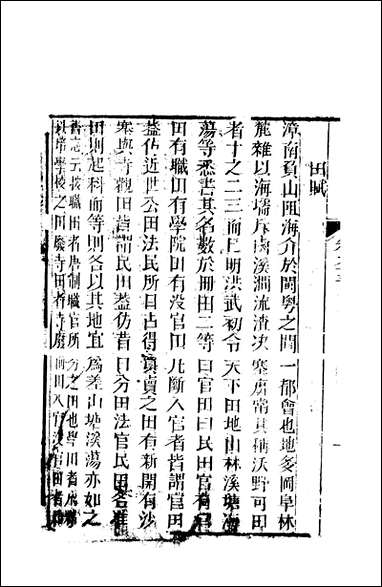 田賦
漳南負山阻海介於閩粤之間一都會也地多岡阜林
麓雜以海壖斥鹵溪澗流漬決塞靡常其稱沃野可田
者十之二三而已明洪武初令天下田地山林溪塘海
蕩等悉書其名數於冊田二等曰官田曰民田官有
田有職田有學院田有没官田凡斷入官者皆謂官田
益仿近世公田法民所自占得買賣之田有新開有沙
寨與寺觀田皆謂民田益仿昔口分田法官民田各
田則起科而等則各以其地宜為差山塘溪蕩亦如之
按職田者唐制職官所分之田也學田者
學校之田廢寺田者寺廢田入官